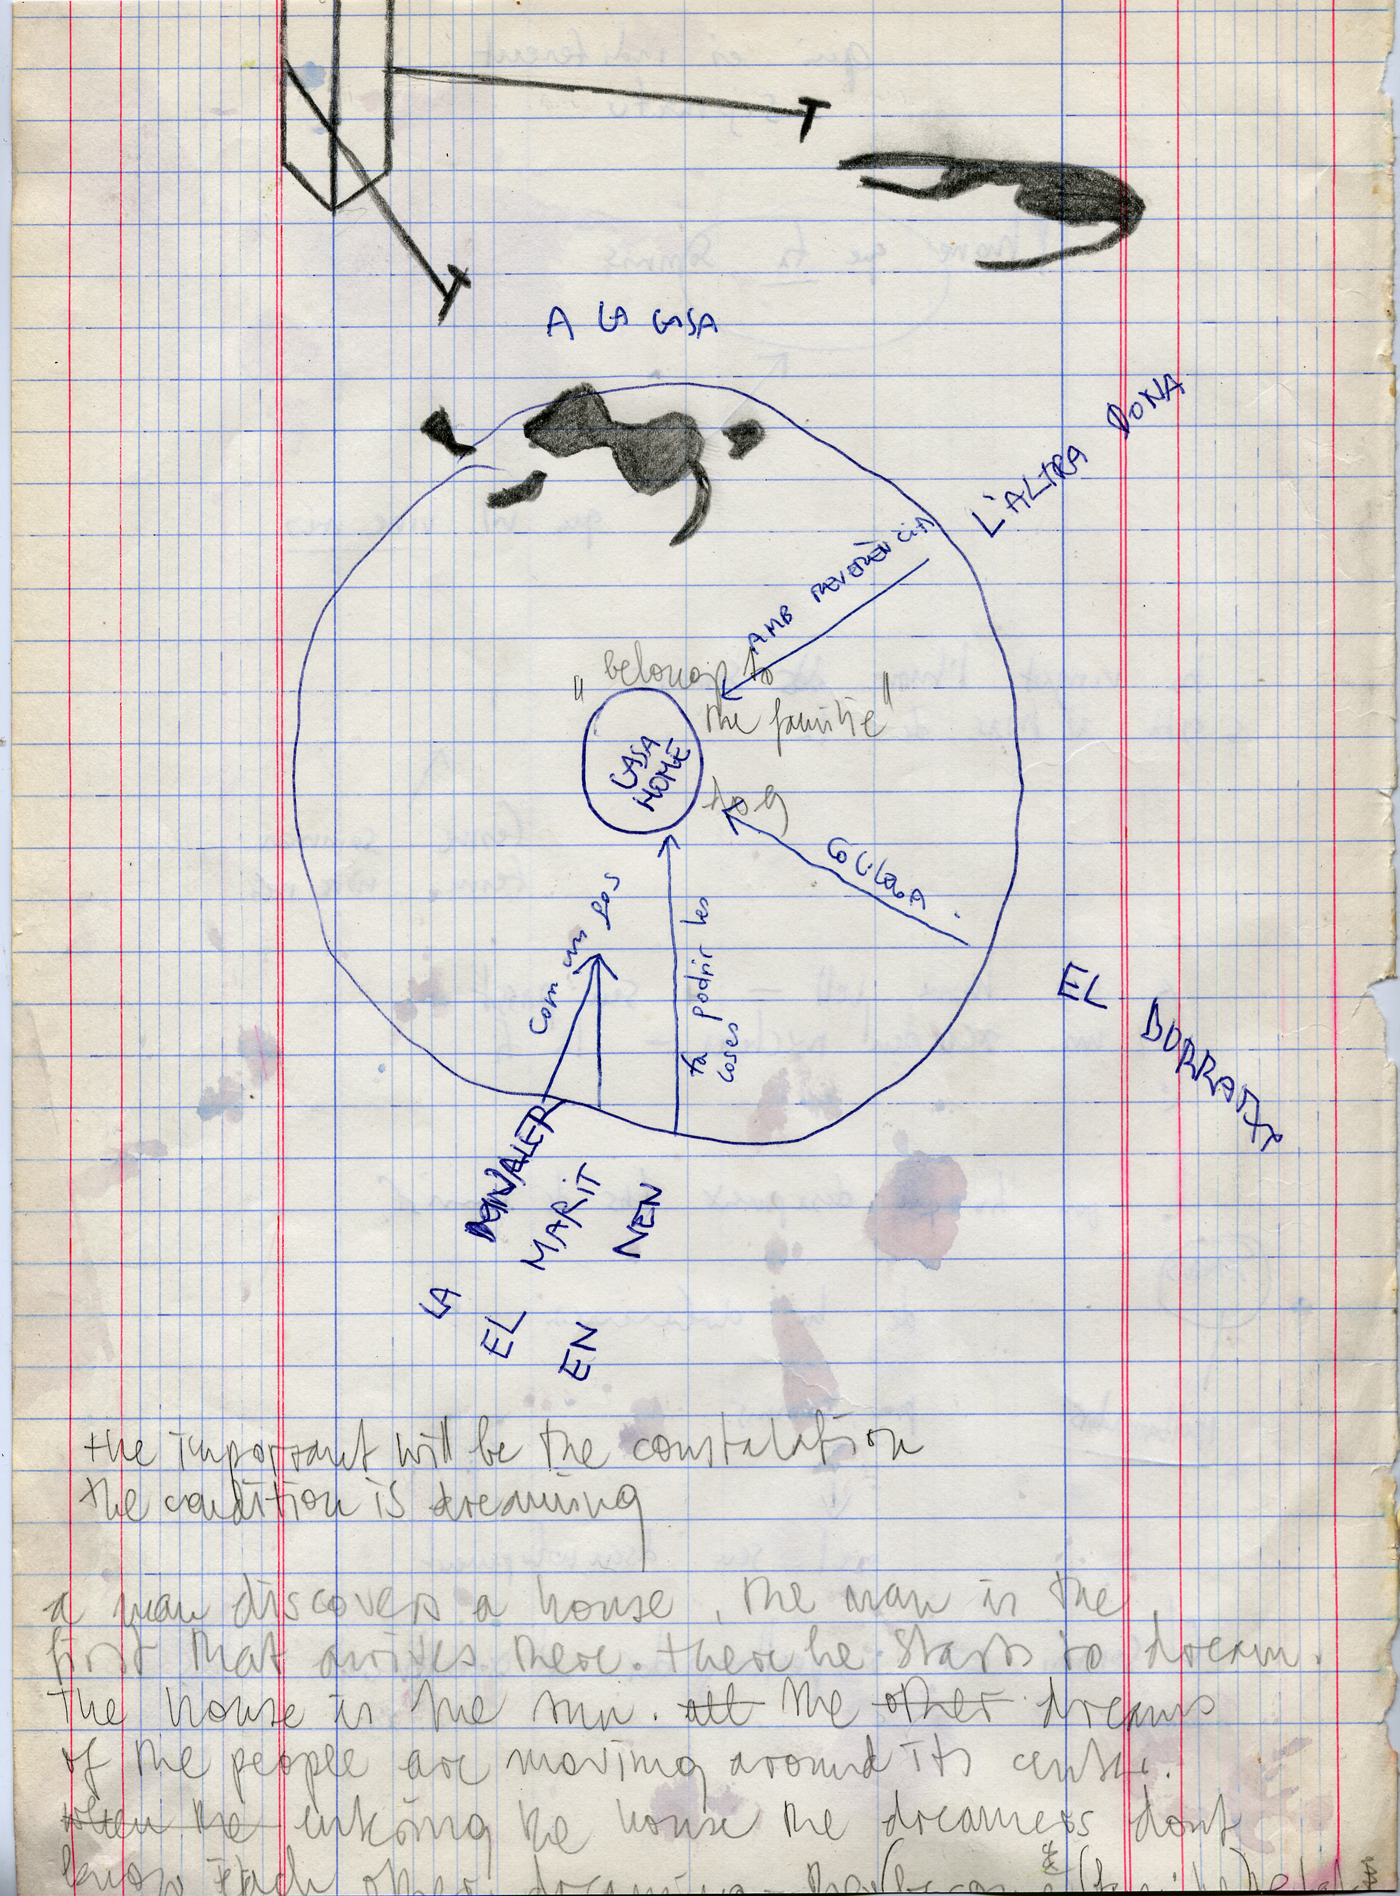 A LA CASA
L'ALTRA DONA
AMB REVERÈNCIA
"belongs to
the familie"
CASA
HOME
dog
COLLONA
com un gos
fa podrir les
coses
EL BORRATXO
LA
EL MARIT
EN NEN
the important will be the constalation
the condition is dreaming
a man discovers a house, the man is the
first that arrives there. there he starts to dream.
the house is the sun. all the other dreams
of the people are moving around its center.
when the entering the house the dreamers dont
know each other dreaming